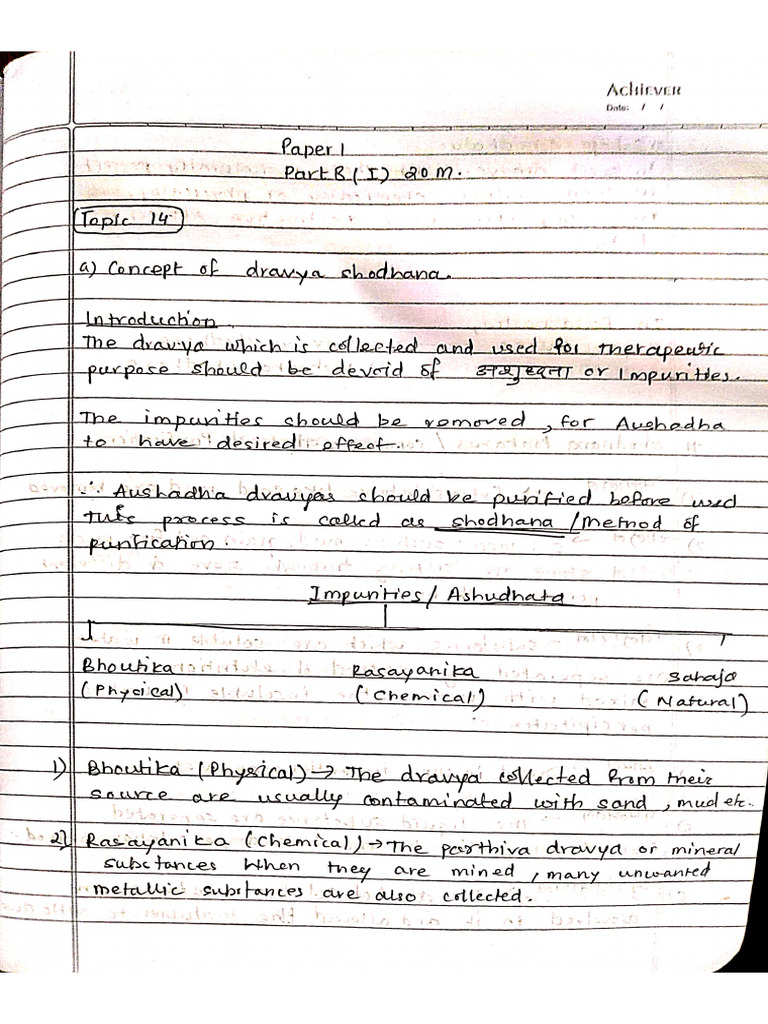 ACHIEVER
Date: / /
Paper 1
Part B (I) 20 M.
Topic 14
a) Concept of dravya shodhana.
Introduction.
The dravya which is collected and used for therapeutic
purpose should be devoid of अशुध्दता or Impurities.
The impurities should be removed, for Aushadha
to have desired effect.
∴ Aushadha dravyas should be purified before used
This process is called as shodhana / Method of
purification.
Impurities / Ashudhata
Bhoutika Rasayanika Sahaja
(Physical) (Chemical) (Natural)
1) Bhoutika (Physical) → The dravya collected from their
source are usually contaminated with sand, mud etc.
2) Rasayanika (Chemical) → The parthiva dravya or mineral
substances when they are mined, many unwanted
metallic substances are also collected.